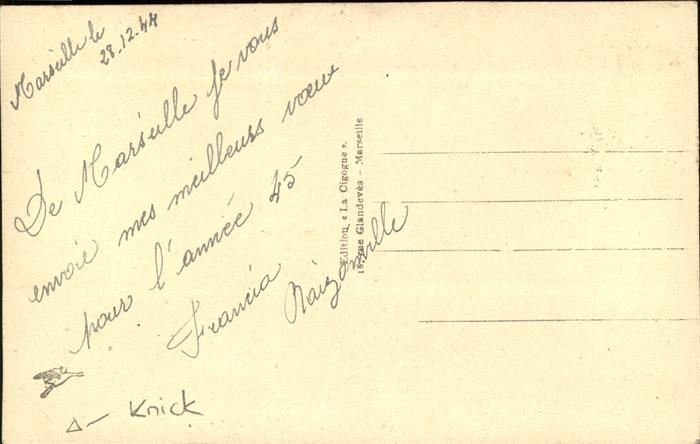 Marseille le
28.12.44
De Marseille je vous
envoie mes meilleurs vœux
pour l'année 45
Francia
Edition « La Cigogne ».
18, rue Glandevès - Marseille
Knick